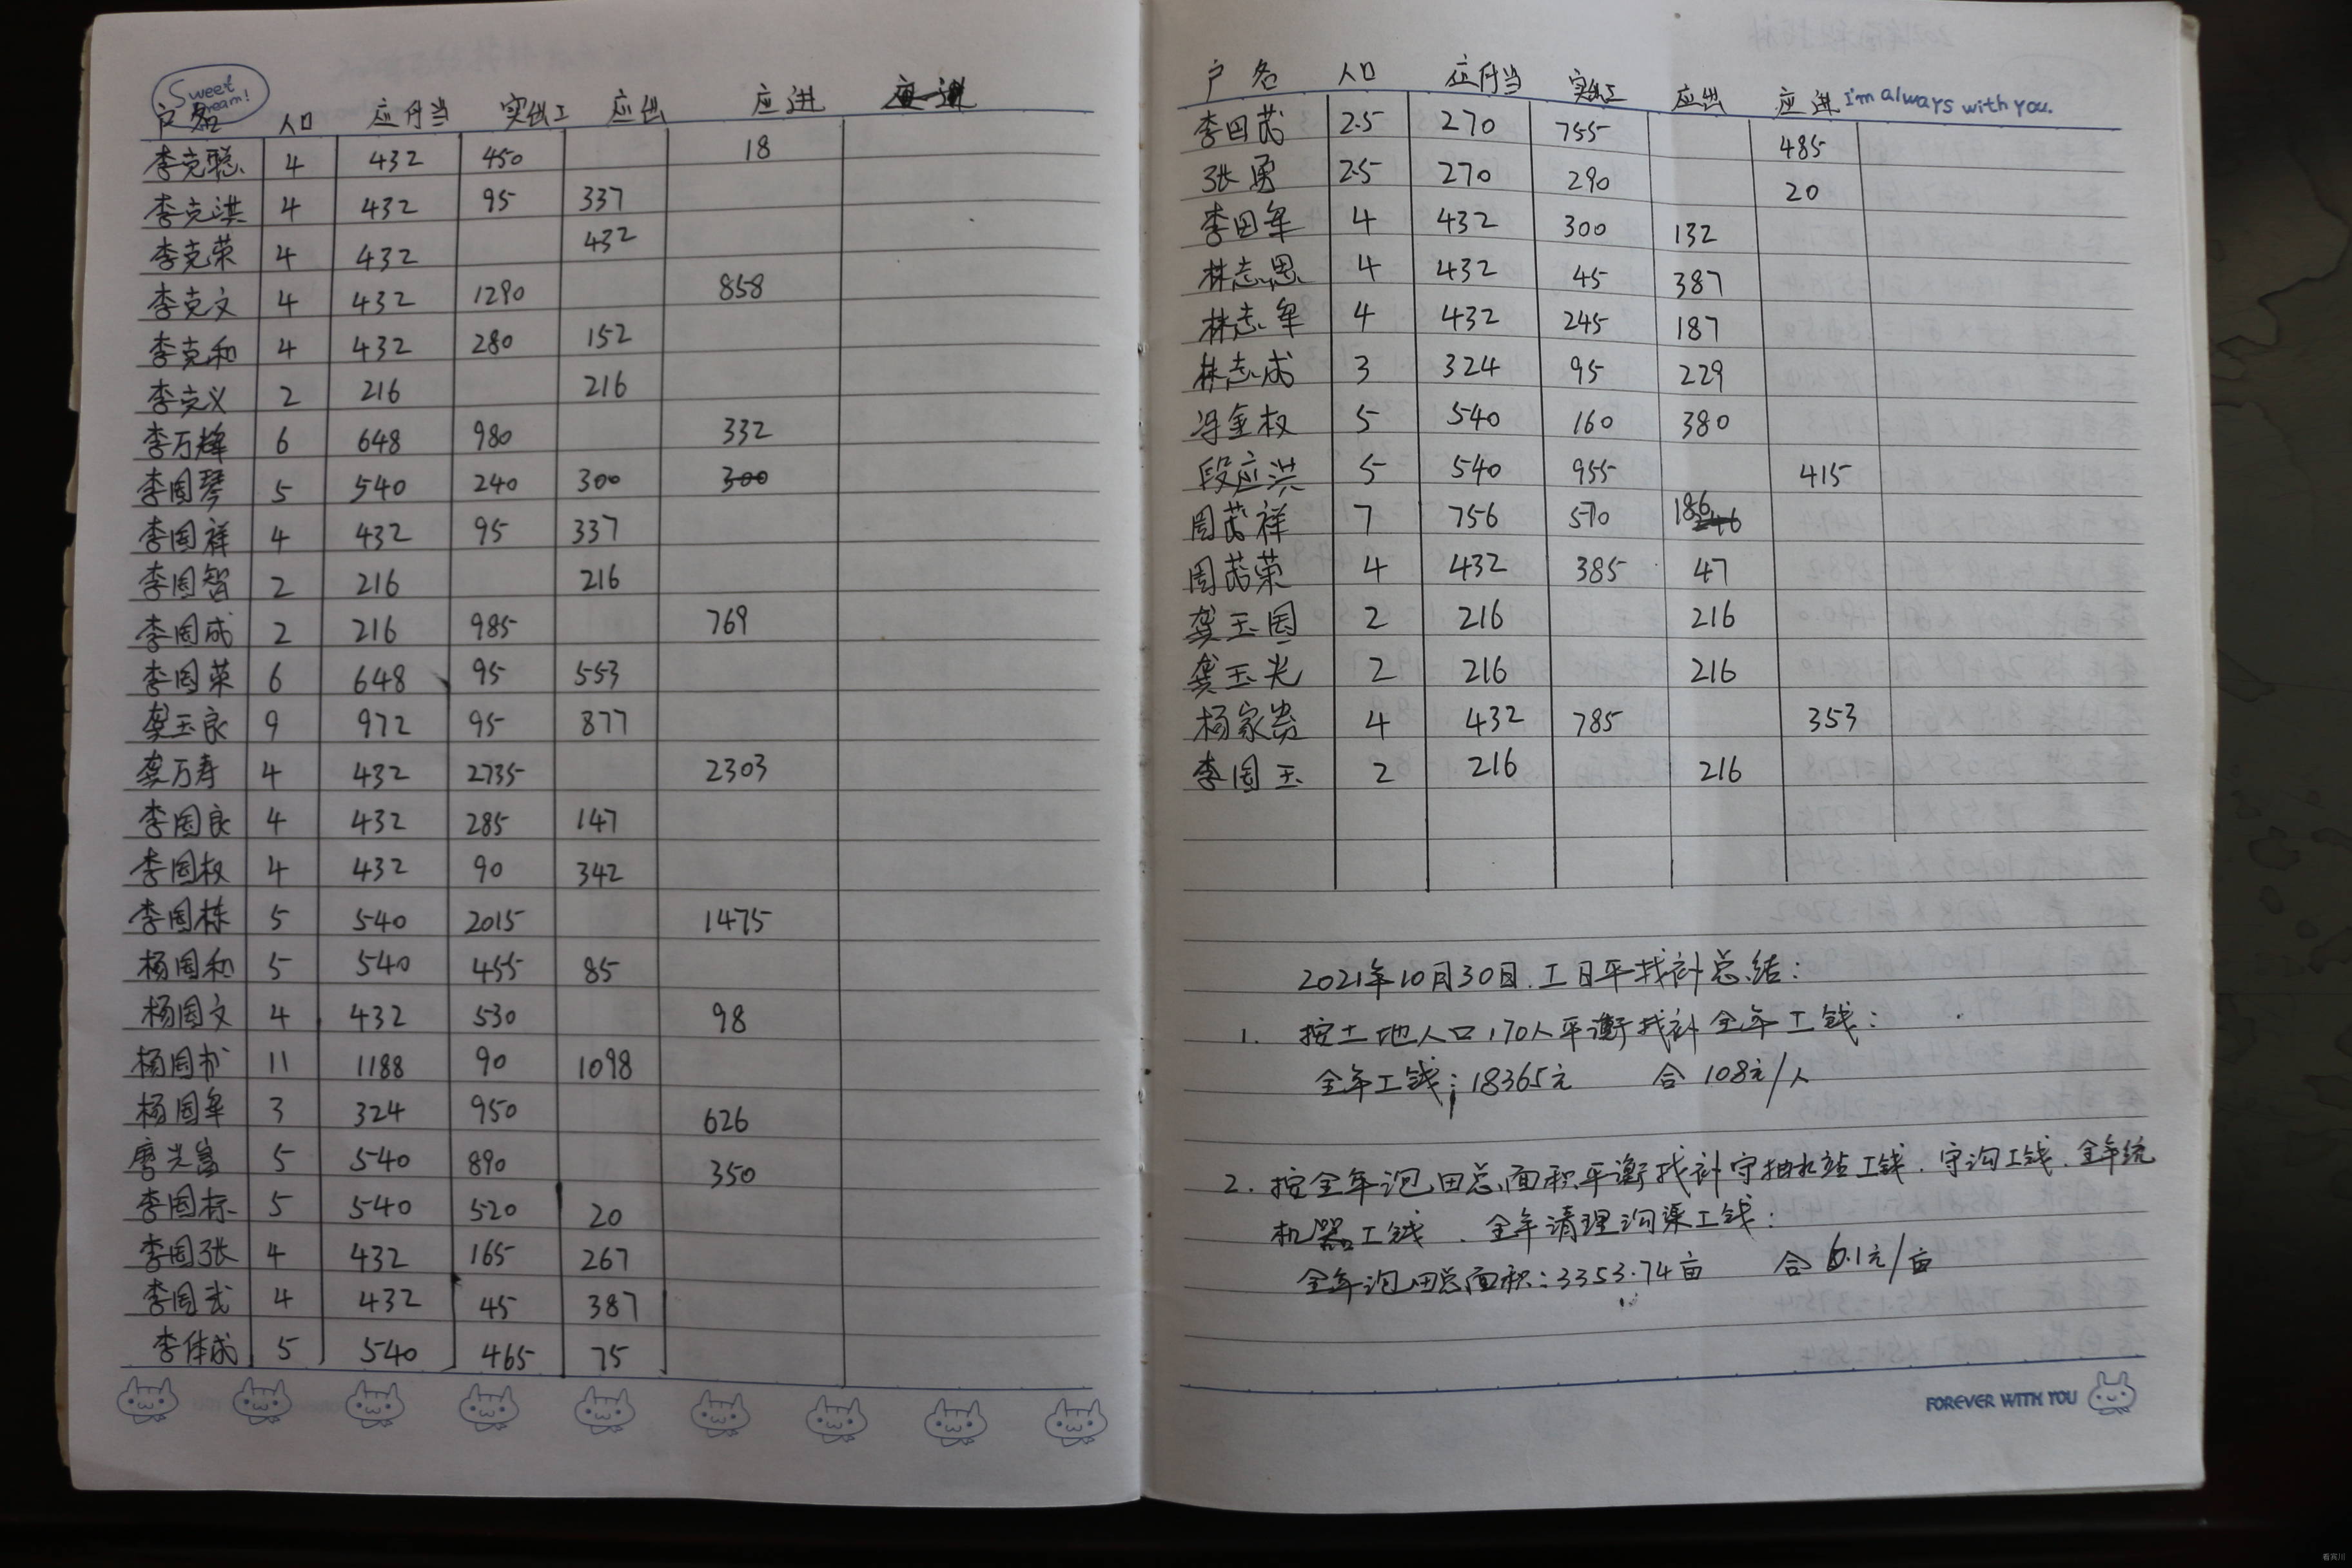 Sweet Dream!
户名 人口 应付当 实出工 应出 应进
李克聪 4 432 450 18
李克洪 4 432 95 337
李克荣 4 432 432
李克文 4 432 1290 858
李克和 4 432 280 152
李克义 2 216 216
李万辉 6 648 980 332
李国琴 5 540 240 300 300
李国祥 4 432 95 337
李国智 2 216 216
李国成 2 216 985 769
李国荣 6 648 95 553
龚玉良 9 972 95 877
龚万寿 4 432 2735 2303
李国良 4 432 285 147
李国权 4 432 90 342
李国栋 5 540 2015 1475
杨国和 5 540 455 85
杨国文 4 432 530 98
杨国 11 1188 90 1098
杨国军 3 324 950 626
廖兴富 5 540 890 350
李国标 5 540 520 20
李国张 4 432 165 267
李国武 4 432 45 387
李体成 5 540 465 75
户名 人口 应付当 实出工 应出 应进 I'm always with you.
李国茂 2.5 270 755 485
张勇 2.5 270 290 20
李国军 4 432 300 132
林志恩 4 432 45 387
林志军 4 432 245 187
林志成 3 324 95 229
冯金权 5 540 160 380
段应洪 5 540 955 415
周茂祥 7 756 570 186
周茂荣 4 432 385 47
龚玉国 2 216 216
龚玉光 2 216 216
杨家贵 4 432 785 353
李国玉 2 216 216
2021年10月30日.工日平找补总结:
1. 按土地人口170人平衡找补全年工钱:
全年工钱:18365元 合108元/人
2. 按全年泡田总面积平衡找补守抽水站工钱.守沟工钱.全年统
机器工钱.全年清理沟渠工钱:
全年泡田总面积:3353.74亩 合6.1元/亩
FOREVER WITH YOU
看宾川